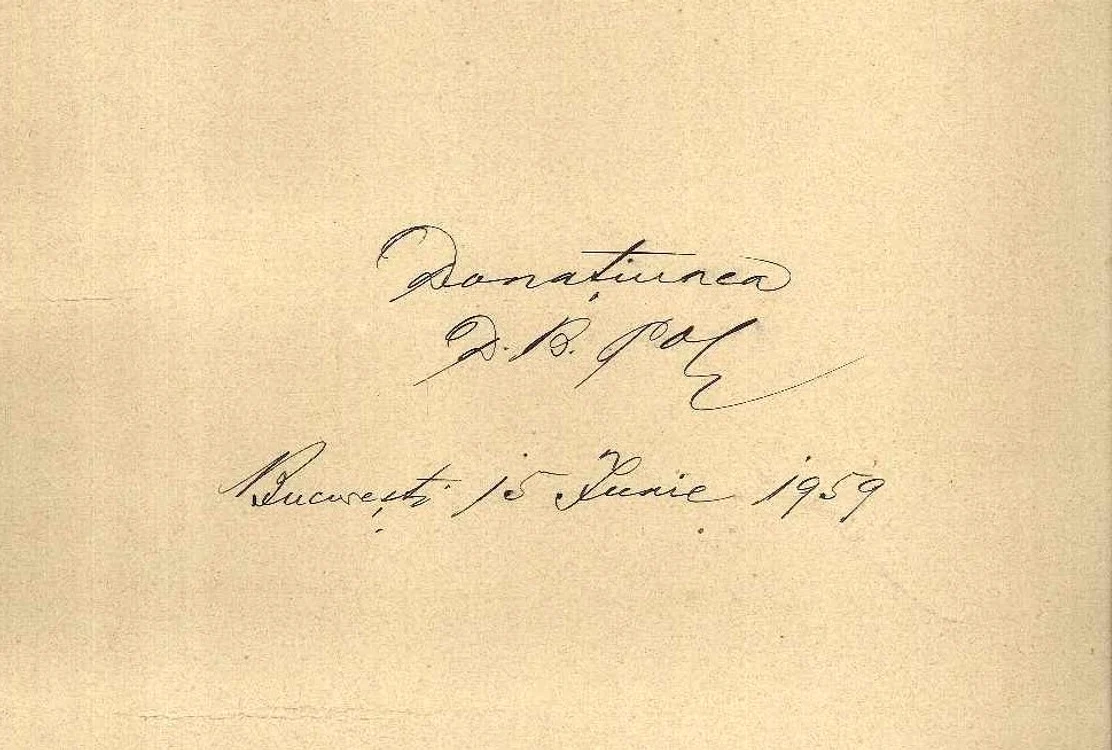 Donațiunea
D. B. Pol
București 15 Iunie 1959